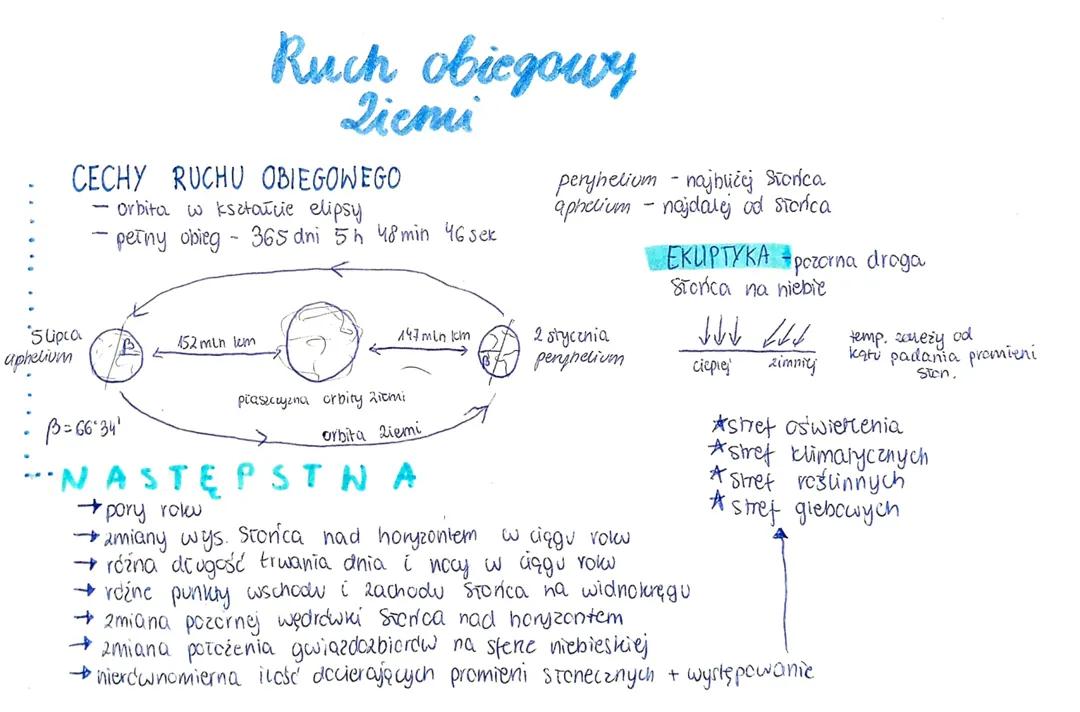 Ruch obiegowy
Ziemi
CECHY RUCHU OBIEGOWEGO
- orbita w kształcie elipsy
- pełny obieg - 365 dni 5 h 48 min 46 sek
peryhelium - najbliżej Słońca
aphelium - najdalej od Słońca
EKLIPTYKA - pozorna droga
Słońca na niebie
5 lipca
aphelium
β
152 mln km
147 mln km
β
2 stycznia
peryhelium
płaszczyzna orbity Ziemi
orbita Ziemi
β = 66°34'
cieplej
zimniej
temp. zależy od
kątu padania promieni
słon.
★ stref oświetlenia
★ stref klimatycznych
★ stref roślinnych
★ stref glebowych
NASTĘPSTWA
→ pory roku
→ zmiany wys. Słońca nad horyzontem w ciągu roku
→ różna długość trwania dnia i nocy w ciągu roku
→ różne punkty wschodu i zachodu Słońca na widnokręgu
→ zmiana pozornej wędrówki Słońca nad horyzontem
→ zmiana położenia gwiazdozbiorów na sferze niebieskiej
→ nierównomierna ilość docierających promieni słonecznych + występowanie